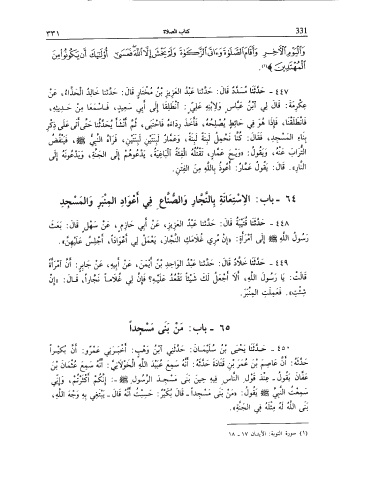 331 كتاب الصلاة ٣٣١
وَٱلْيَوْمِ ٱلْآخِرِ وَأَقَامَ ٱلصَّلَوٰةَ وَءَاتَى ٱلزَّكَوٰةَ وَلَمْ يَخْشَ إِلَّا ٱللَّهَ فَعَسَىٰٓ أُو۟لَٰٓئِكَ أَن يَكُونُوا۟ مِنَ
ٱلْمُهْتَدِينَ﴾(١).
٤٤٧ - حَدَّثَنَا مُسَدَّدٌ قَالَ: حَدَّثَنَا عَبْدُ العَزِيزِ بْنُ مُخْتَارٍ قَالَ: حَدَّثَنَا خَالِدٌ الحَذَّاءُ، عَنْ
عِكْرِمَةَ: قَالَ لِي ابْنُ عَبَّاسٍ وَلابْنِهِ عَلِيٍّ: انْطَلِقَا إِلَى أَبِي سَعِيدٍ، فَاسْمَعَا مِنْ حَدِيثِهِ،
فَانْطَلَقْنَا، فَإِذَا هُوَ فِي حَائِطٍ يُصْلِحُهُ، فَأَخَذَ رِدَاءَهُ فَاحْتَبَى، ثُمَّ أَنْشَأَ يُحَدِّثُنَا حَتَّى أَتَى عَلَى ذِكْرِ
بِنَاءِ المَسْجِدِ، فَقَالَ: كُنَّا نَحْمِلُ لَبِنَةً لَبِنَةً، وَعَمَّارٌ لَبِنَتَيْنِ لَبِنَتَيْنِ، فَرَآهُ النَّبِيُّ ﷺ، فَيَنْفُضُ
التُّرَابَ عَنْهُ، وَيَقُولُ: «وَيْحَ عَمَّارٍ، تَقْتُلُهُ الفِئَةُ البَاغِيَةُ، يَدْعُوهُمْ إِلَى الجَنَّةِ، وَيَدْعُونَهُ إِلَى
النَّارِ». قَالَ: يَقُولُ عَمَّارٌ: أَعُوذُ بِاللَّهِ مِنَ الفِتَنِ.
٦٤ - باب: الاِسْتِعَانَةِ بِالنَّجَّارِ وَالصُّنَّاعِ فِي أَعْوَادِ المِنْبَرِ وَالمَسْجِدِ
٤٤٨ - حَدَّثَنَا قُتَيْبَةُ قَالَ: حَدَّثَنَا عَبْدُ العَزِيزِ، عَنْ أَبِي حَازِمٍ، عَنْ سَهْلٍ قَالَ: بَعَثَ
رَسُولُ اللَّهِ ﷺ إِلَى امْرَأَةٍ: «أَنْ مُرِي غُلَامَكِ النَّجَّارَ، يَعْمَلْ لِي أَعْوَادًا، أَجْلِسُ عَلَيْهِنَّ».
٤٤٩ - حَدَّثَنَا خَلَّادٌ قَالَ: حَدَّثَنَا عَبْدُ الوَاحِدِ بْنُ أَيْمَنَ، عَنْ أَبِيهِ، عَنْ جَابِرٍ: أَنَّ امْرَأَةً
قَالَتْ: يَا رَسُولَ اللَّهِ، أَلَا أَجْعَلُ لَكَ شَيْئًا تَقْعُدُ عَلَيْهِ؟ فَإِنَّ لِي غُلَامًا نَجَّارًا، قَالَ: «إِنْ
شِئْتِ». فَعَمِلَتِ المِنْبَرَ.
٦٥ - باب: مَنْ بَنَى مَسْجِداً
٤٥٠ - حَدَّثَنَا يَحْيَى بْنُ سُلَيْمَانَ: حَدَّثَنِي ابْنُ وَهْبٍ: أَخْبَرَنِي عَمْرٌو: أَنَّ بُكَيْرًا
حَدَّثَهُ: أَنَّ عَاصِمَ بْنَ عُمَرَ بْنِ قَتَادَةَ حَدَّثَهُ: أَنَّهُ سَمِعَ عُبَيْدَ اللَّهِ الخَوْلَانِيَّ: أَنَّهُ سَمِعَ عُثْمَانَ بْنَ
عَفَّانَ يَقُولُ - عِنْدَ قَوْلِ النَّاسِ فِيهِ حِينَ بَنَى مَسْجِدَ الرَّسُولِ ﷺ -: إِنَّكُمْ أَكْثَرْتُمْ، وَإِنِّي
سَمِعْتُ النَّبِيَّ ﷺ يَقُولُ: «مَنْ بَنَى مَسْجِدًا - قَالَ بُكَيْرٌ: حَسِبْتُ أَنَّهُ قَالَ - يَبْتَغِي بِهِ وَجْهَ اللَّهِ،
بَنَى اللَّهُ لَهُ مِثْلَهُ فِي الجَنَّةِ».
(١) سورة التوبة: الآيتان ١٧ - ١٨